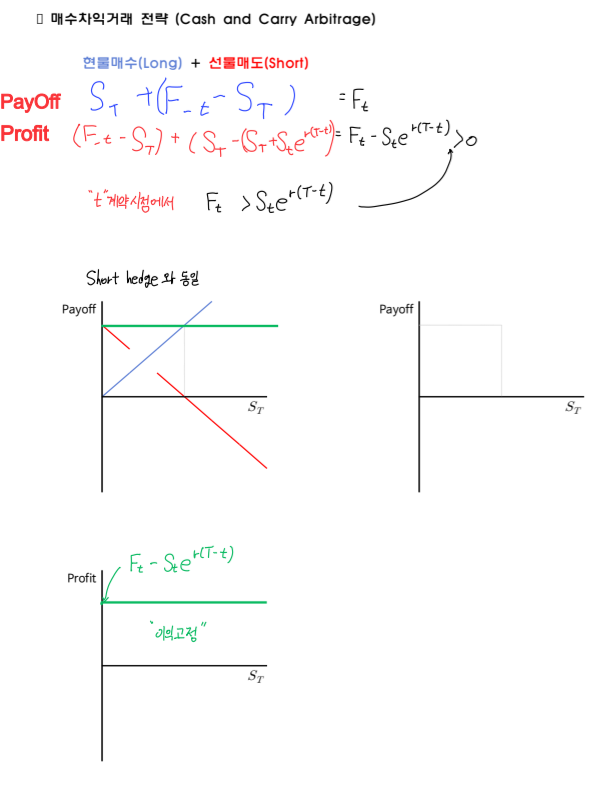 ▯ 매수차익거래 전략 (Cash and Carry Arbitrage)
현물매수(Long) + 선물매도(Short)
PayOff S_T + (F_t - S_T) = F_t
Profit (F_t - S_T) + (S_T - (S_T + S_t e^r(T-t)) = F_t - S_t e^r(T-t) > 0
"t"계약시점에서 F_t > S_t e^r(T-t)
Short hedge 와 동일
Payoff
S_T
Payoff
S_T
F_t - S_t e^r(T-t)
Profit
"이익고정"
S_T